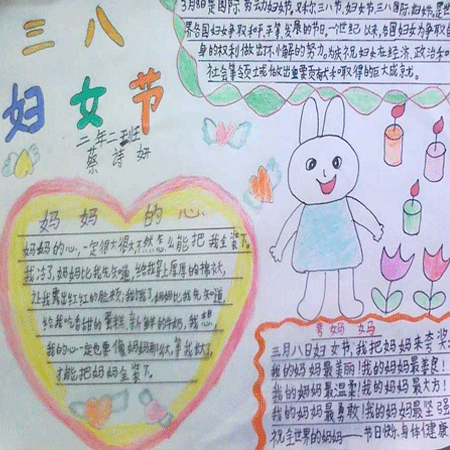 三八
妇女节
二年二班
蔡诗妍
3月8日是国际劳动妇女节,又称三八节,妇女节,三八国际妇女节.是世
界各国妇女争取和平平等,发展的节日,一世纪以来,各国妇女为争取自
身的权利做出不懈的努力.为庆祝妇女在经济、政治和
社会等领域做出重要贡献和取得的巨大成就。
妈妈的心
妈妈的心,一定很大很大,不然怎么能把我全装下。
我冷了,妈妈比我先知道,给我穿上厚厚的棉衣,
让我露出红红的脸颊;我饿了,妈妈比我先知道,
给我吃香甜的蛋糕,新鲜的牛奶,我想,
我的心一定也要像妈妈那么大,等我大了,
才能把妈妈全装下。
妈妈
三月八日妇女节,我把妈妈来夸奖:
我的妈妈最美丽!我的妈妈最善良!
我的妈妈最温柔!我的妈妈最大方!
我的妈妈最勇敢!我的妈妈最坚强
祝全世界的妈妈——节日快乐,身体健康